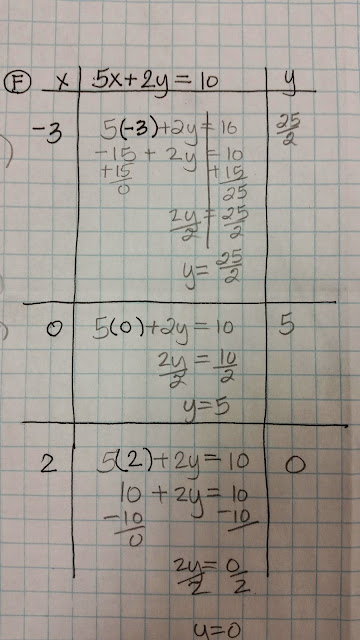 F x 5x+2y=10 y
-3 5(-3)+2y=10 25/2
-15 + 2y=10
+15 +15
0 25
2y/2=25/2
y=25/2
0 5(0)+2y=10 5
2y/2=10/2
y=5
2 5(2)+2y=10 0
10 + 2y=10
-10 -10
0
2y/2=0/2
y=0